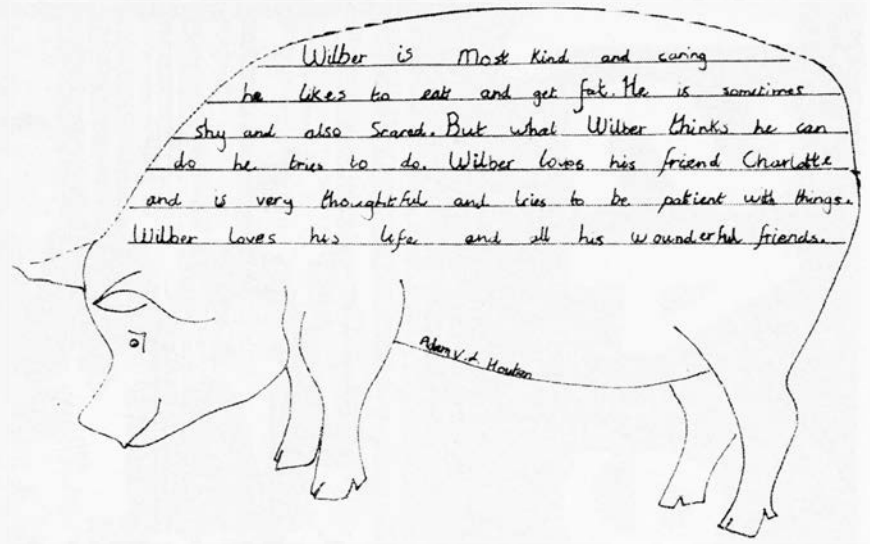 Wilber is most kind and caring
he likes to eat and get fat. He is sometimes
shy and also scared. But what Wilber thinks he can
do he tries to do. Wilber loves his friend Charlotte
and is very thoughtful and tries to be patient with things.
Wilber loves his life and all his wounderful friends.
Adam V.d. Houten